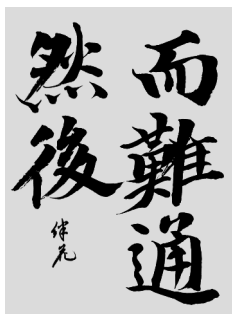 而難通
然後
伴花